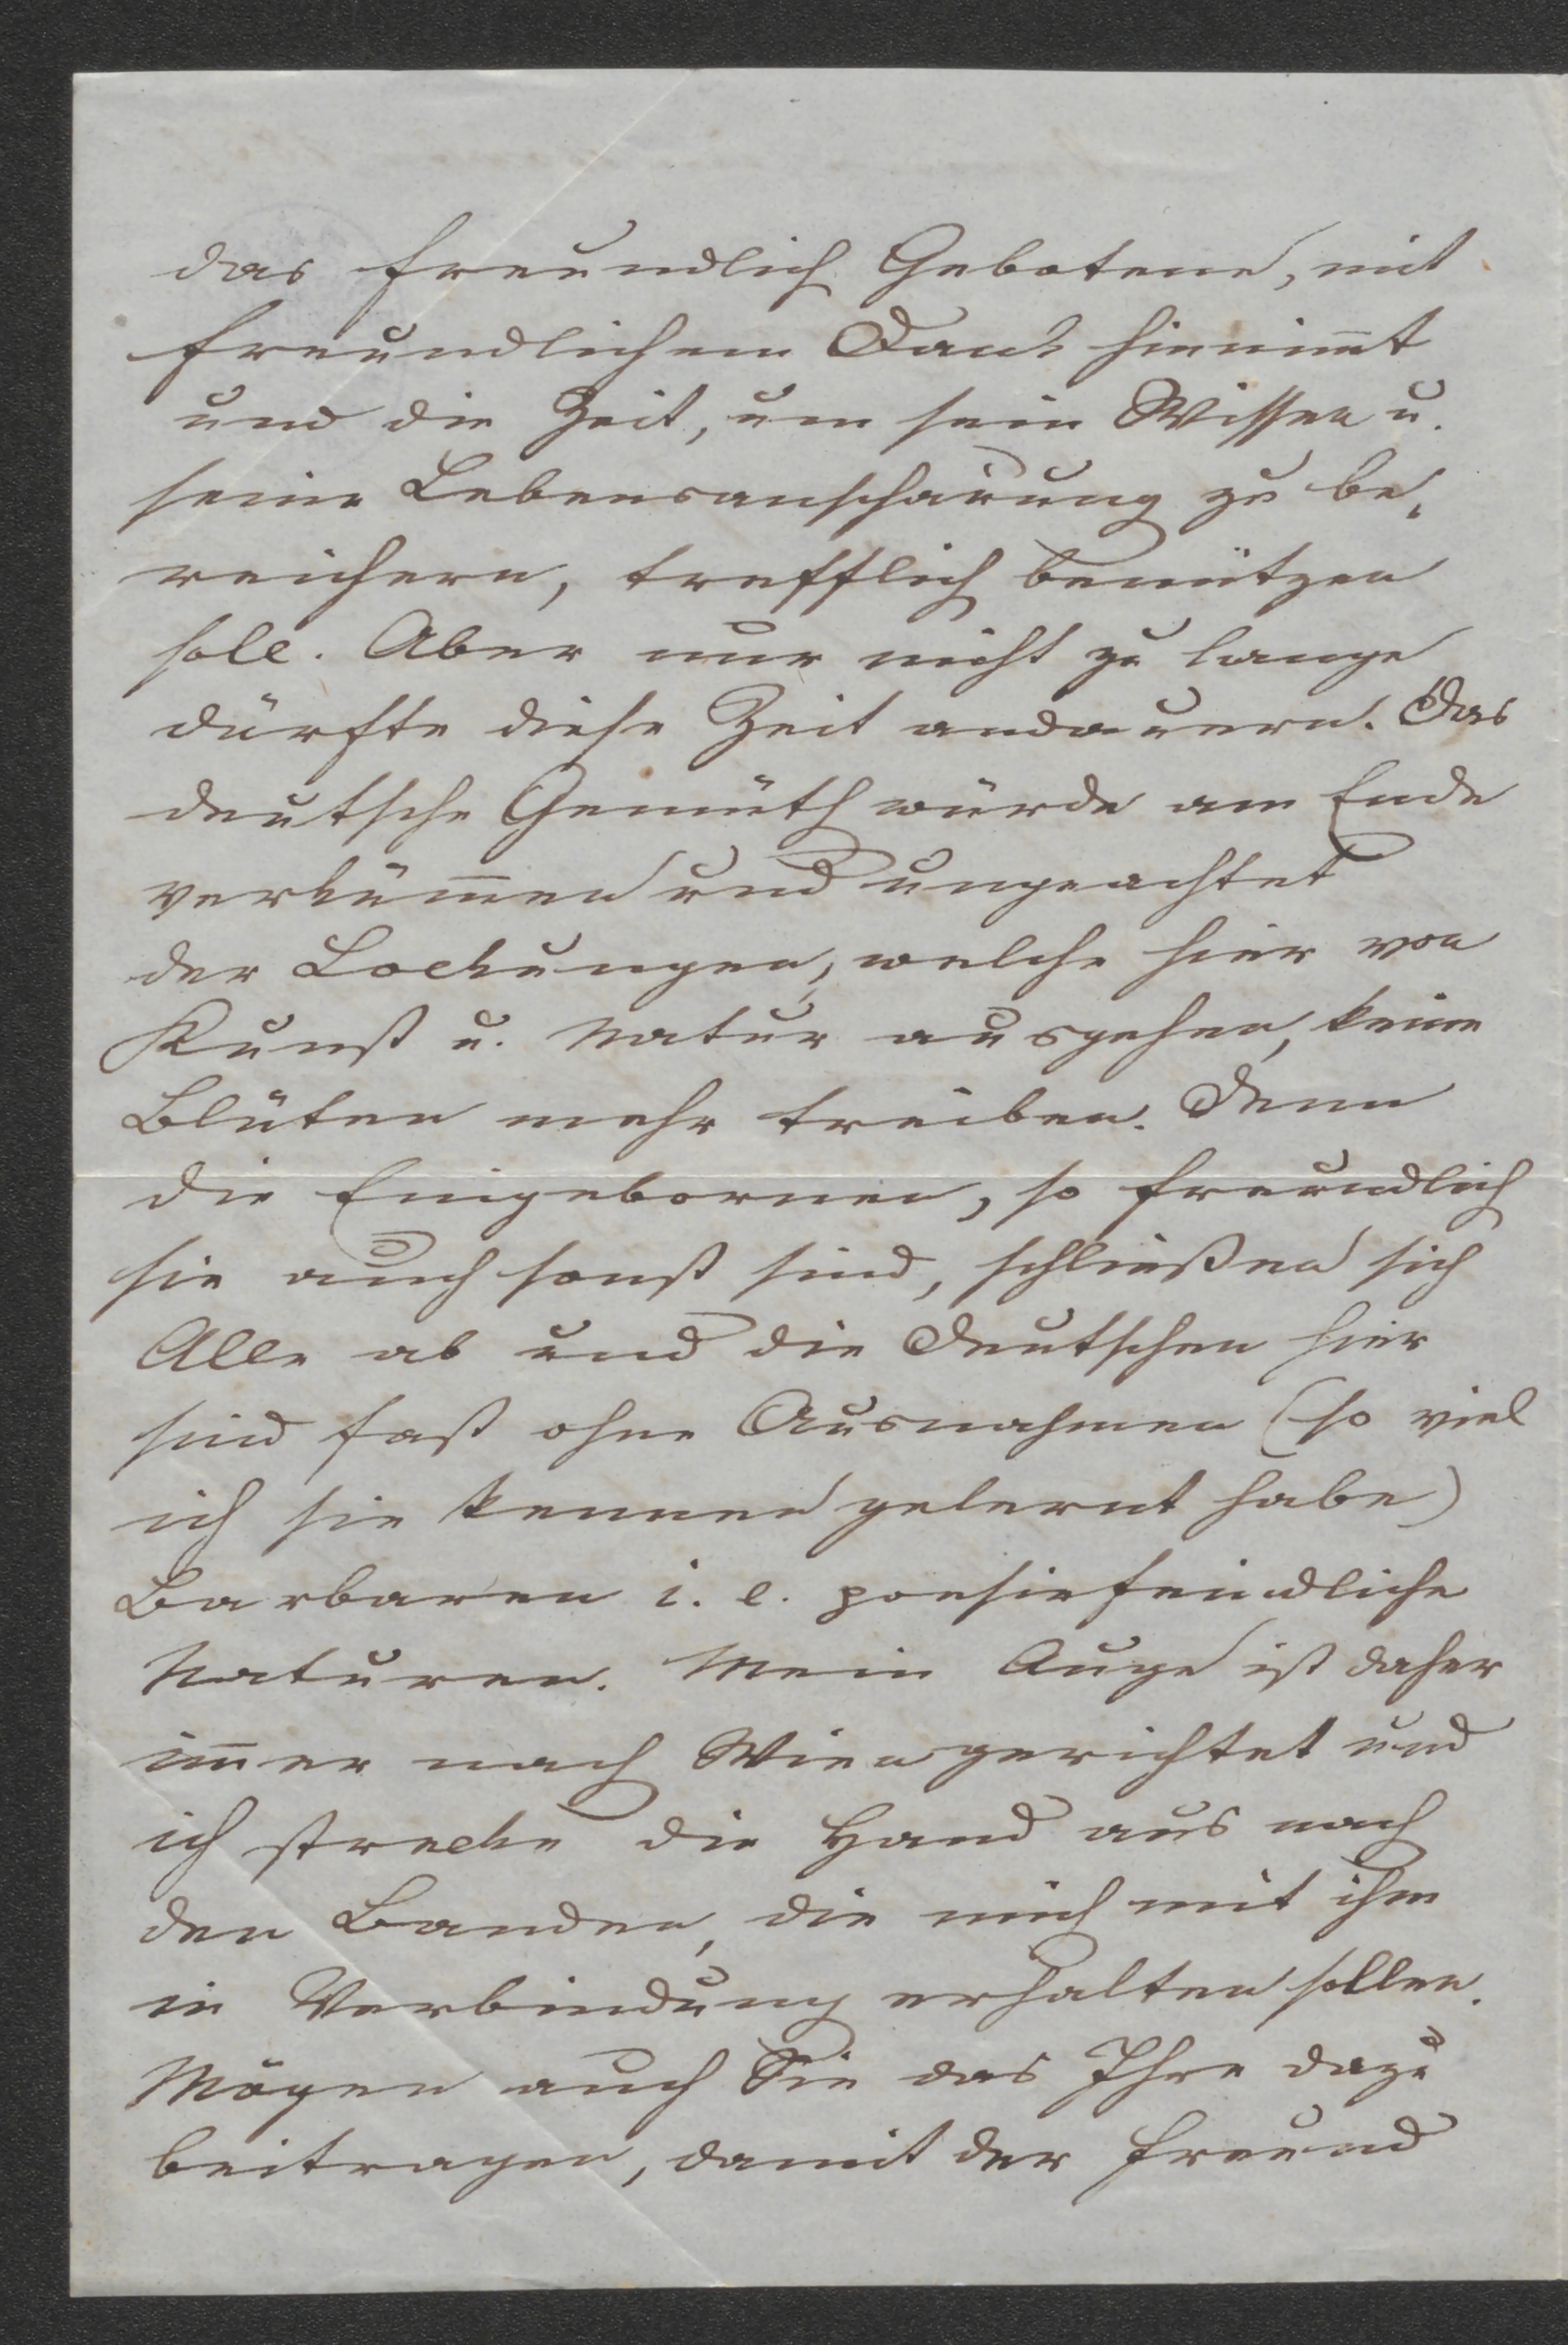 das freundlich Gebotene, mit
freundlichem Dank hinnim̅t
und die Zeit, um sein Wissen u.
seine Lebensanschauung zu be¬
reichern, trefflich benützen
soll. Aber nur nicht zu lange
dürfte diese Zeit andauern. Das
deutsche Gemüth würde am Ende
verküm̅en und ungeachtet
der Lockungen, welche hier von
Kunst u. Natur ausgehen, keine
Blüten mehr treiben. Denn
die Eingebornen, so freundlich
sie auch sonst sind, schließen sich
Alle ab und die Deutschen hier
sind fast ohne Ausnahmen (so viel
ich sie kennen gelernt habe)
Barbaren i. e. poesiefeindliche
Naturen. Mein Auge ist daher
im̅er nach Wien gerichtet und
ich strecke die Hand aus nach
den Banden, die mich mit ihm
in Verbindung erhalten sollen.
Mögen auch Sie das Ihre dazu
beitragen, damit der Freund